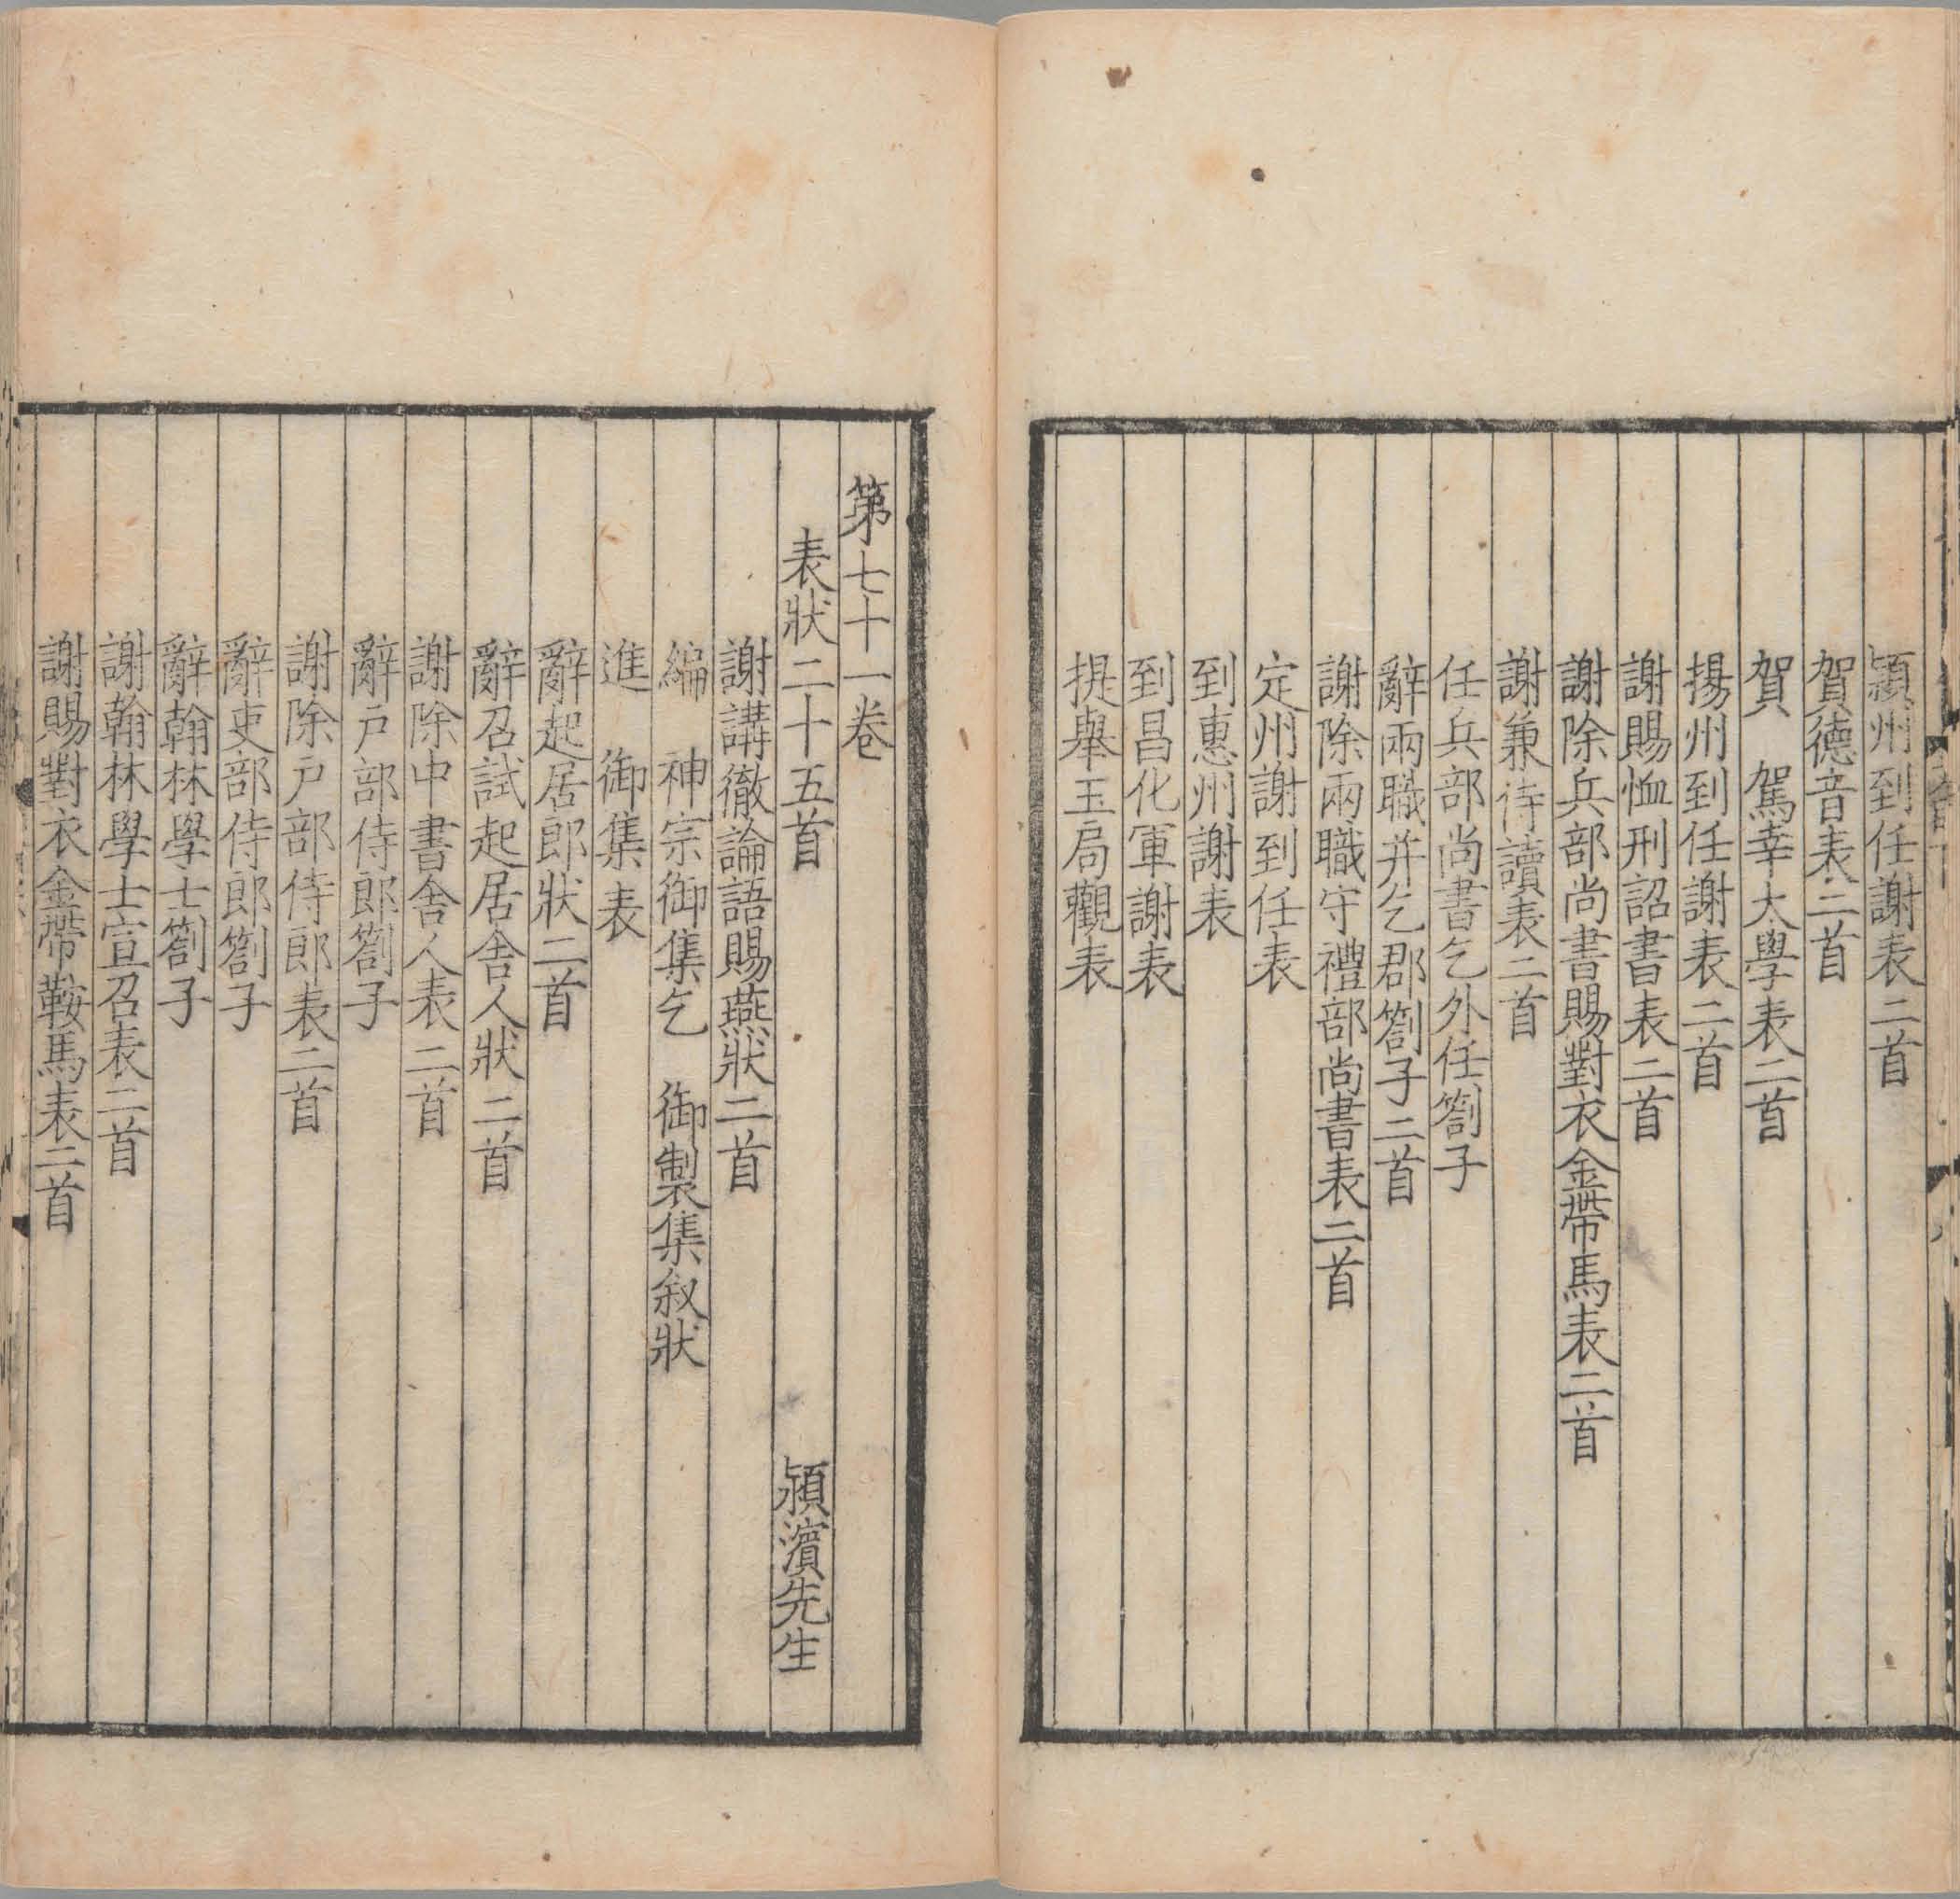 潁州到任謝表二首
賀德音表二首
賀　駕幸太學表二首
揚州到任謝表二首
謝賜恤刑詔書表二首
謝除兵部尚書賜對衣金帶馬表二首
謝兼侍讀表二首
任兵部尚書乞外任劄子
辭兩職并乞郡劄子二首
謝除兩職守禮部尚書表二首
定州謝到任表
到惠州謝表
到昌化軍謝表
提舉玉局觀表
第七十一卷
表狀二十五首　潁濱先生
謝講徹論語賜燕狀二首
編　神宗御集乞　御製集叙狀
進　御集表
辭起居郎狀二首
辭召試起居舍人狀二首
謝除中書舍人表二首
辭戶部侍郎劄子
謝除戶部侍郎表二首
辭吏部侍郎劄子
辭翰林學士劄子
謝翰林學士宣召表二首
謝賜對衣金帶鞍馬表二首